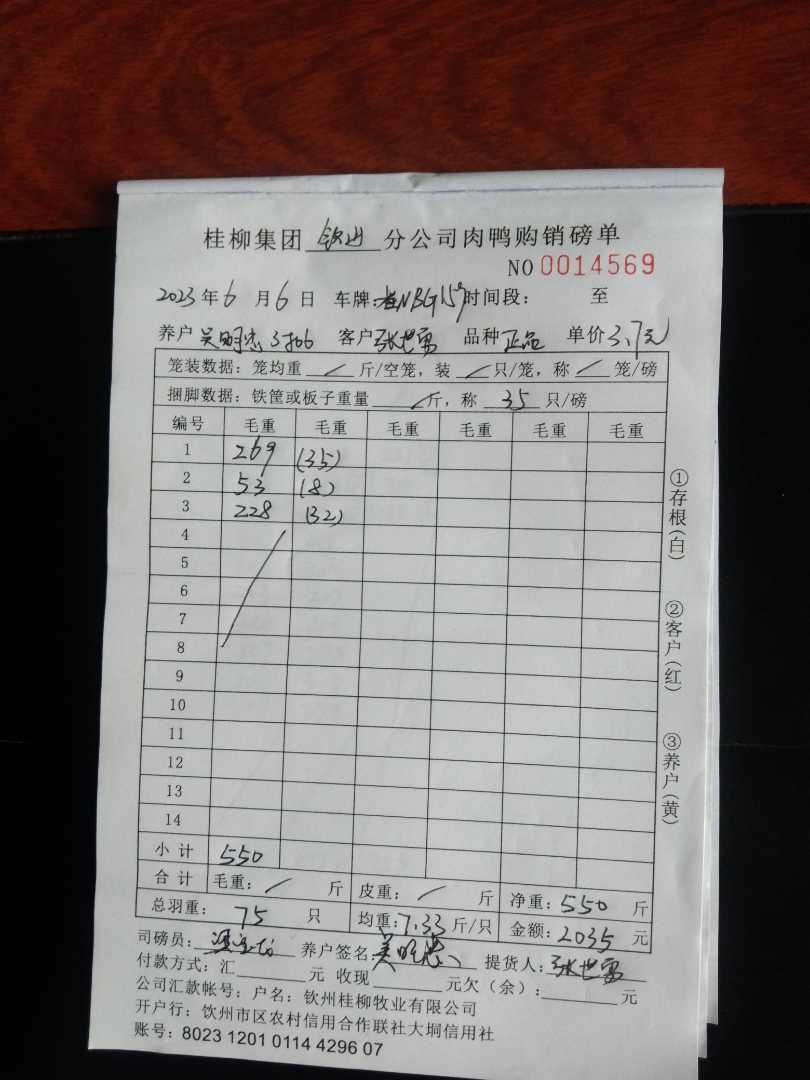 桂柳集团 钦州 分公司肉鸭购销磅单
NO 0014569
2023 年 6 月 6 日 车牌: 时间段: 至
养户 吴明忠 客户 张世勇 品种 正品 单价 3.7元
笼装数据: 笼均重 / 斤/空笼, 装 / 只/笼, 称 / 笼/磅
捆脚数据: 铁筐或板子重量 / 斤, 称 35 只/磅
编号 毛重 毛重 毛重 毛重 毛重 毛重
1 269 (35)
2 53 (8)
3 228 (32)
4
5
6
7
8
9
10
11
12
13
14
小计 550
合计 毛重: / 斤 皮重: / 斤 净重: 550 斤
总羽重: 75 只 均重: 7.33 斤/只 金额: 2035 元
司磅员: 养户签名 吴明忠 提货人: 张世勇
付款方式: 汇 元 收现 元欠(余): 元
公司汇款帐号: 户名: 钦州桂柳牧业有限公司
开户行: 钦州市区农村信用合作联社大垌信用社
账号: 8023 1201 0114 4296 07
①存根(白)
②客户(红)
③养户(黄)